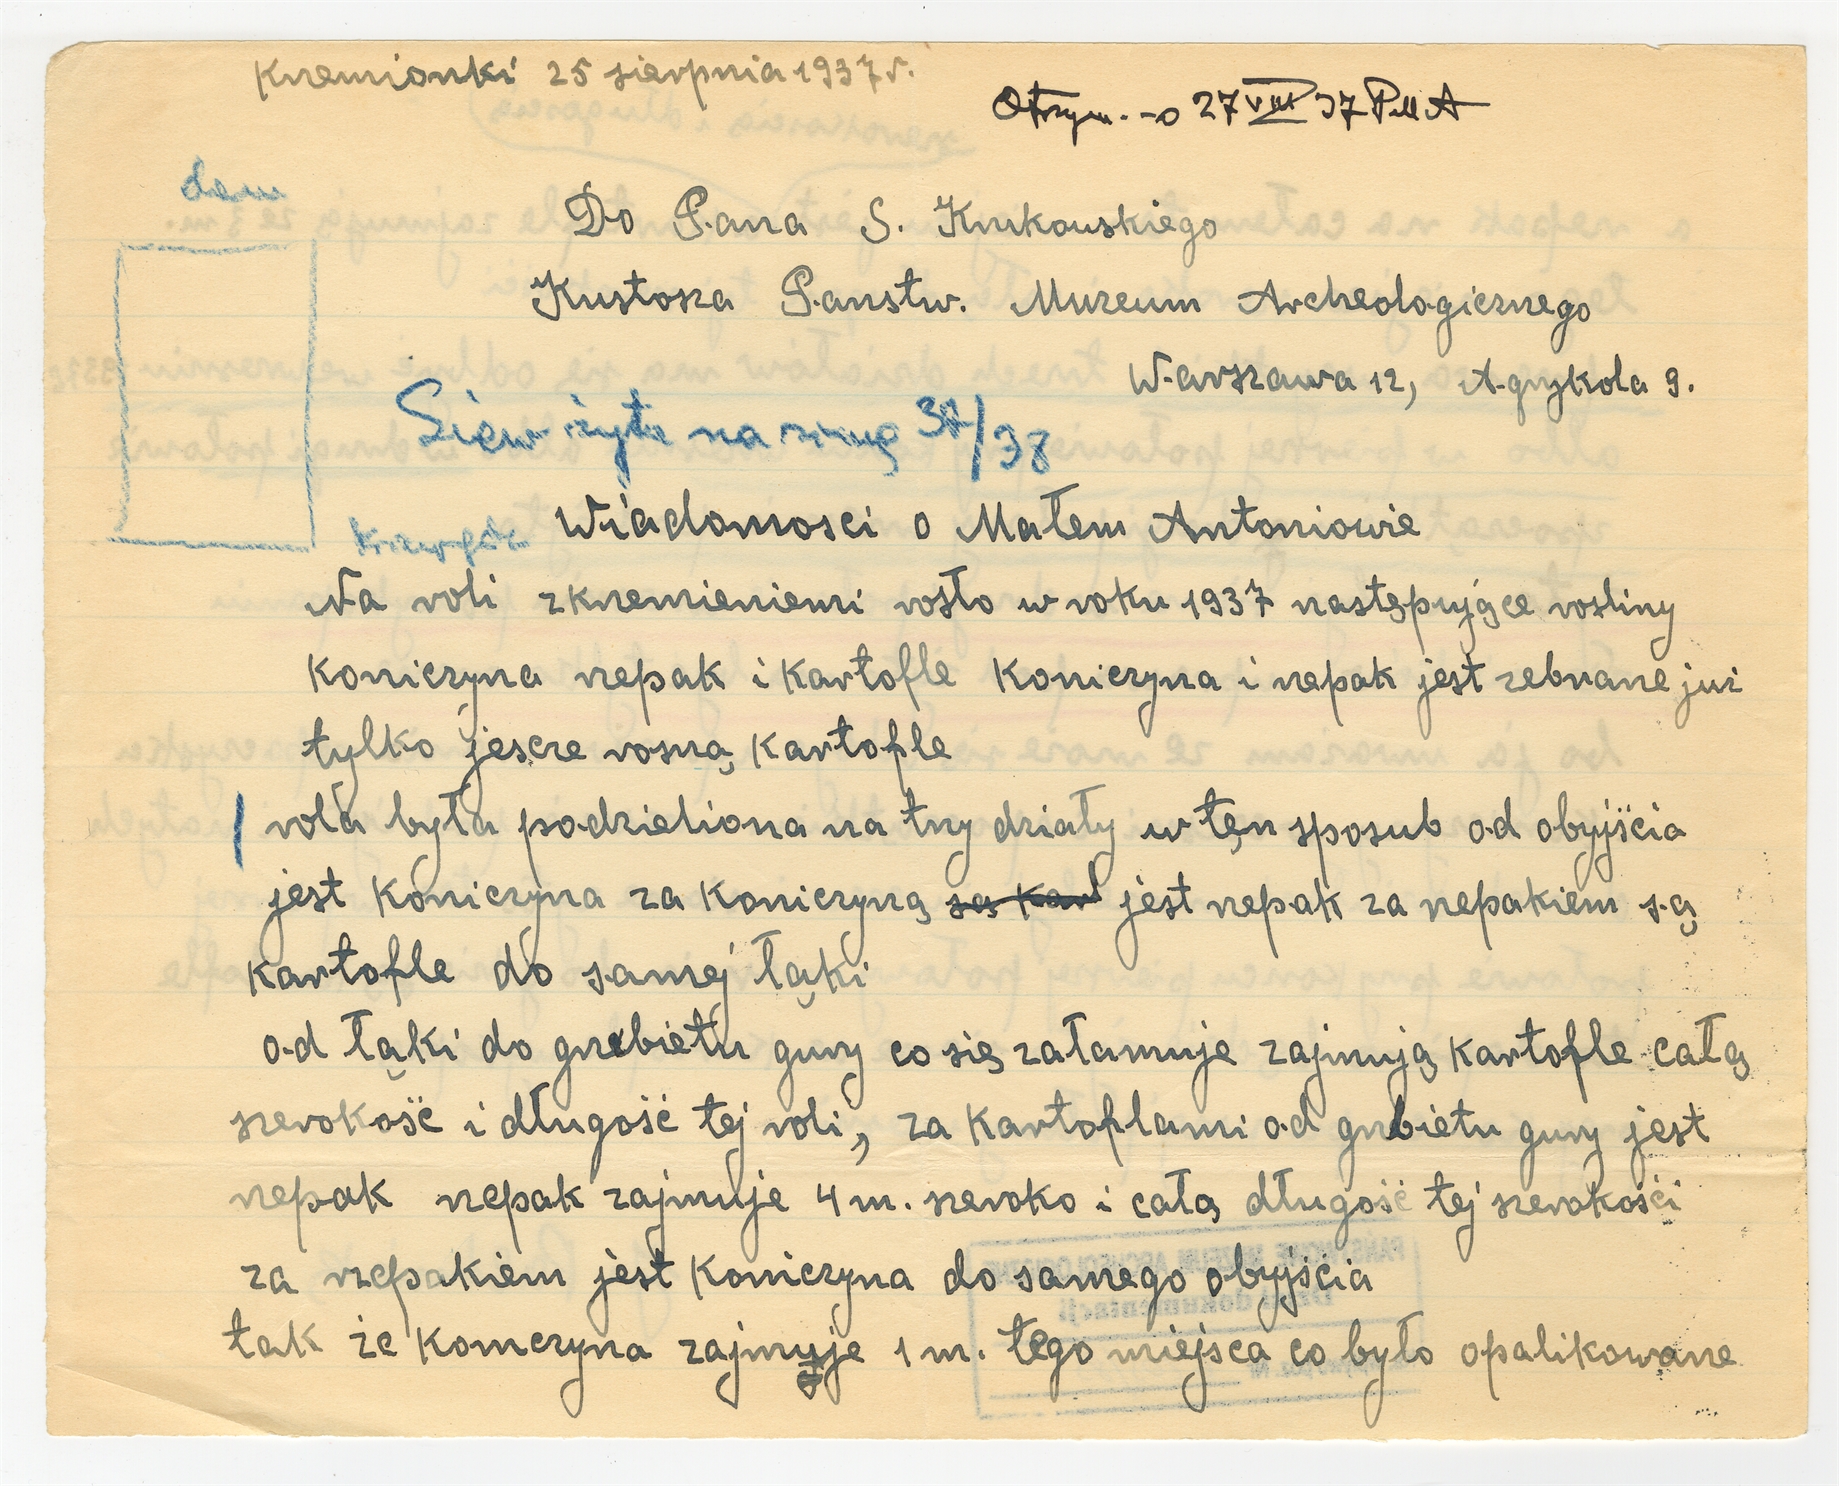 Krzemionki 25 sierpnia 1937 r.
Otrzym. - o 27 VIII 37 PMA
dom
Do Pana S. Krukowskiego
Kustosza Panstw. Muzeum Archeologicznego
Warszawa 12, Agrykola 9.
Siew żyta na zimę 37/38
Wiadomosci o Małem Antoniowie
krawędź
Na roli zkrzemieniemi rosło w roku 1937 następujące rosliny
koniczyna rzepak i kartofle koniczyna i rzepak jest zebrane już
tylko jescze rosną kartofle
rola była podzieliona na trzy działy w tęn sposub od obyjścia
jest koniczyna za koniczyną są kar jest rzepak za rzepakiem są
kartofle do samej łąki
od łąki do grzbietu gury co się załamuje zajmują kartofle całą
szerokość i długość tej roli, za kartoflami od grzbietu gury jest
rzepak rzepak zajmuje 4 m. szeroko i całą długość tej szerokości
za rzepakiem jest koniczyna do samego obyjścia
tak że koniczyna zajmuje 1 m. tego miejsca co było opalikowane